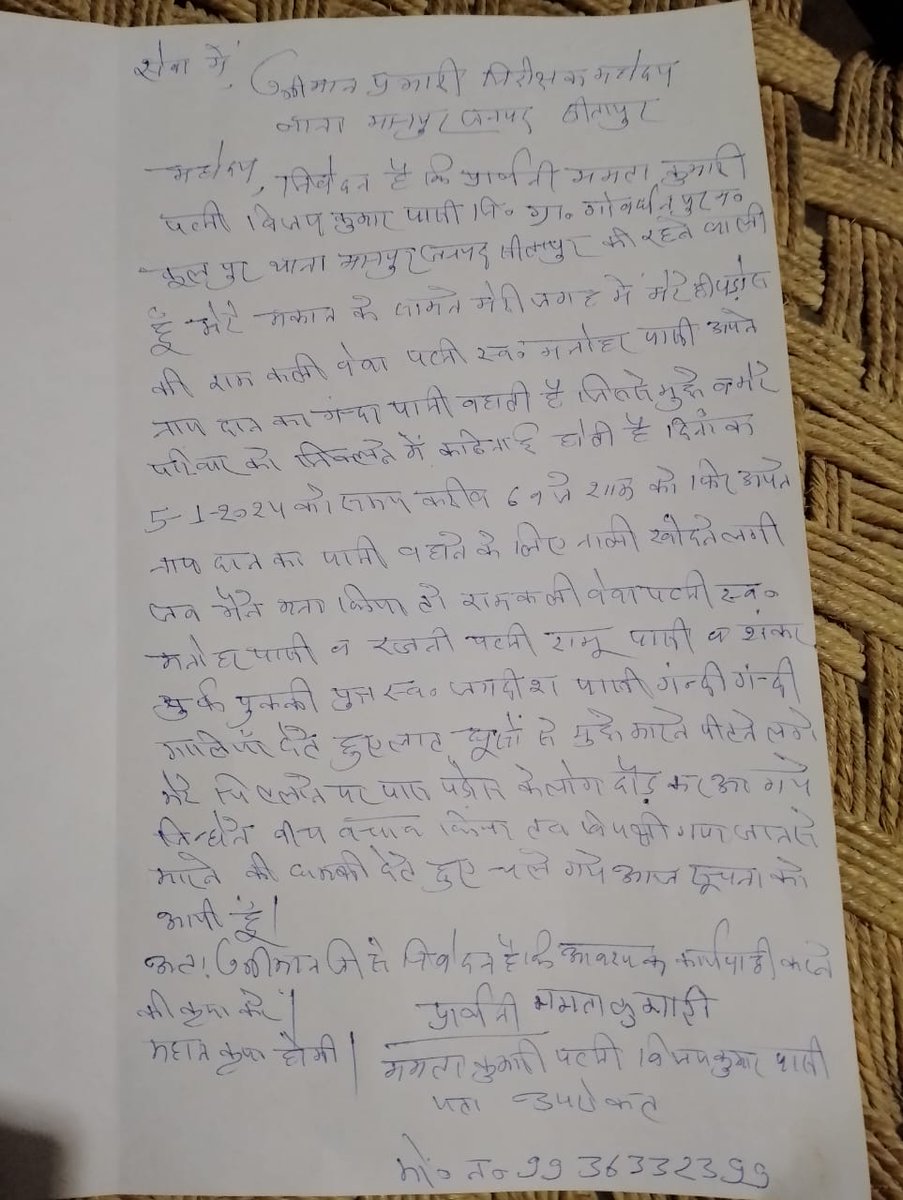 सेवा में,
श्रीमान प्रभारी निरीक्षक महोदय
थाना मानपुर जनपद सीतापुर
महोदय, निवेदन है कि प्रार्थनी ममता कुमारी
पत्नी विजय कुमार पासी नि० ग्रा० गोवर्धनपुर म०
कूलपुर थाना मानपुर जनपद सीतापुर की रहने वाली
हूँ मेरे मकान के सामने मेरी जगह में मेरे ही पड़ोस
की राम कली वेवा पत्नी स्व० मनोहर पासी अपने
नाप दान का गन्दा पानी बहाती है जिससे मुझे व मेरे
परिवार को निकलने में कठिनाई होती है दिनांक
5-1-2025 को समय करीब 6 बजे शाम को फिर अपने
नाप दान का पानी बहाने के लिए नाली खोदने लगी
जब मैंने मना किया तो रामकली वेवा पत्नी स्व०
मनोहर पासी व रजनी पत्नी रामू पासी व शंकर
उर्फ पुक्की पुत्र स्व० जगदीश पासी गन्दी गंन्दी
गालियाँ देते हुए लात घूसों से मुझे मारने पीटने लगे
मेरे चिल्लाने पर पास पड़ोस के लोग दौड़ कर आ गये
जिन्होंने बीच बचाव किया तब विपक्षी गण जान से
मारने की धमकी देते हुए चले गये आज सूचना को
आयी हूँ।
अतः श्रीमान जी से निवेदन है कि आवश्यक कार्यवाही करने
की कृपा करें।
प्रार्थनी ममता कुमारी
महान कृपा होगी।
ममता कुमारी पत्नी विजय कुमार पासी
पता उपरोक्त
मो० न० 9936332399